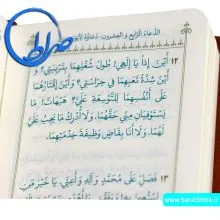 صراط
الدُّعَاءُ الرَّابِعُ وَ الْعِشْرُونَ،
١٢ أَيْنَ إِذًا يَا إِلَهِي! طُولُ شُغْلِهِمَا بِتَرْبِيَتِي؟ وَ
أَيْنَ شِدَّةُ تَعَبِهِمَا فِي حِرَاسَتِي؟ وَ أَيْنَ إِقْتَارُهُمَا
عَلَى أَنْفُسِهِمَا لِلتَّوْسِعَةِ عَلَيَّ؟ هَيْهَاتَ! مَا
يَسْتَوْفِيَانِ مِنِّي حَقَّهُمَا، وَ لَا أُدْرِكُ مَا يَجِبُ عَلَيَّ
لَهُمَا، وَ لَا أَنَا بِقَاضٍ وَظِيفَةَ خِدْمَتِهِمَا.
١٣ فَصَلِّ عَلَى مُحَمَّدٍ وَ آلِهِ وَ أَعِنِّي، يَا خَيْرَ مَنِ
www.SeratStore.ir